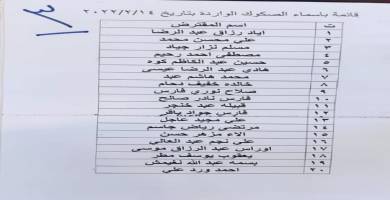 قائمة باسماء الصكوك الواردة بتاريخ ٢٠٢٢/٢/١٤
ت اسم المقترض
١ اياد رزاق عبد الرضا
٢ علي محسن محمد
٣ مسلم نزار جياد
٤ مصطفى احمد رحيم
٥ حسين عبد الكاظم كوه
٦ هادي عبد الرضا عيسى
٧ محمد هاشم عبد
٨ خالده خفيف نجام
٩ صلاح نوري فارس
١٠ فارس نادر صالح
١١ قبيله عبد خنجر
١٢ فارس جواد باقر
١٣ علي مجيد عاجل
١٤ مرتضى رياض جاسم
١٥ الاء مزهر حسن
١٦ علي نجم عبد العالي
١٧ اوراس عبد الرزاق موسى
١٨ يعقوب يوسف مطر
١٩ بسمه عبد الله لفيمش
٢٠ احمد ورد علي